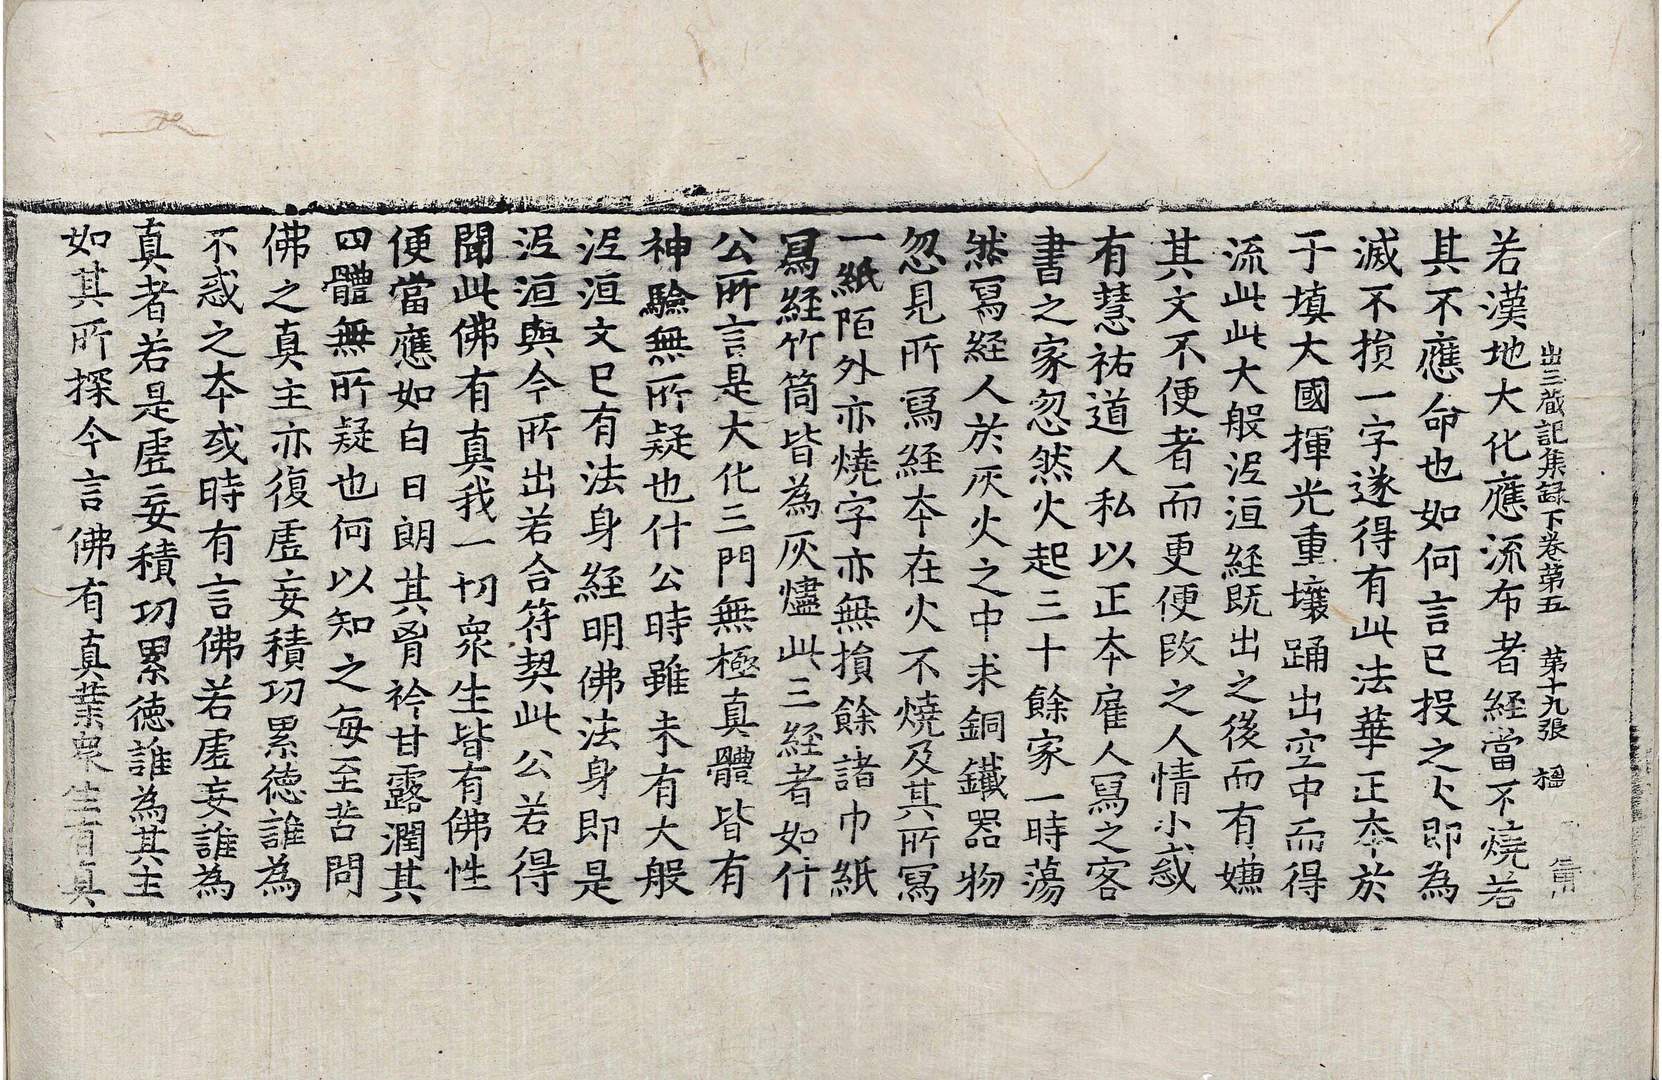 出三蔵記集録下卷第五　第十九張　楹
若漢地大化應流布者經當不燒若
其不應命也如何言已投之火即為
滅不損一字遂得有此法華正夲於
于填大國揮光重壤踊出空中而得
流此此大般泥洹経既出之後而有嫌
其文不便者而更便改之人情小惑
有慧祐道人私以正夲雇人冩之客
書之家忽然火起三十餘家一時蕩
然冩経人於灰火之中求銅鐵器物
忽見所冩経夲在火不燒及其所冩
一紙陌外亦燒字亦無損餘諸巾紙
冩経竹筒皆為灰燼此三経者如什
公所言是大化三門無極真體皆有
神驗無所疑也什公時雖未有大般
泥洹文已有法身経明佛法身即是
泥洹與今所出若合符契此公若得
聞此佛有真我一切衆生皆有佛性
便當應如白日朗其胷衿甘露潤其
四體無所疑也何以知之每至苦問
佛之真主亦復虚妄積功累德誰為
不惑之夲或時有言佛若虚妄誰為
真者若是虚妄積功累德誰為其主
如其所探今言佛有真業衆生有真